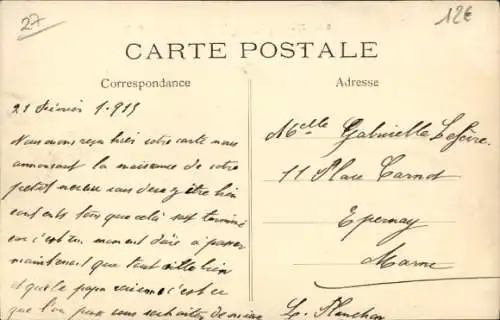 27
12€
CARTE POSTALE
Correspondance
Adresse
21 Février 1915
Nous avons reçu hier votre carte nous
annonçant la naissance de votre
petit neveu vous devez être bien
contents tous que cela soit terminé
car c'est un moment dur à passer
maintenant que tout aille bien
et que le papa revienne c'est ce
que l'on peut vous souhaiter de mieux
Melle Gabrielle Lefèvre.
11 Place Carnot
Epernay
Marne